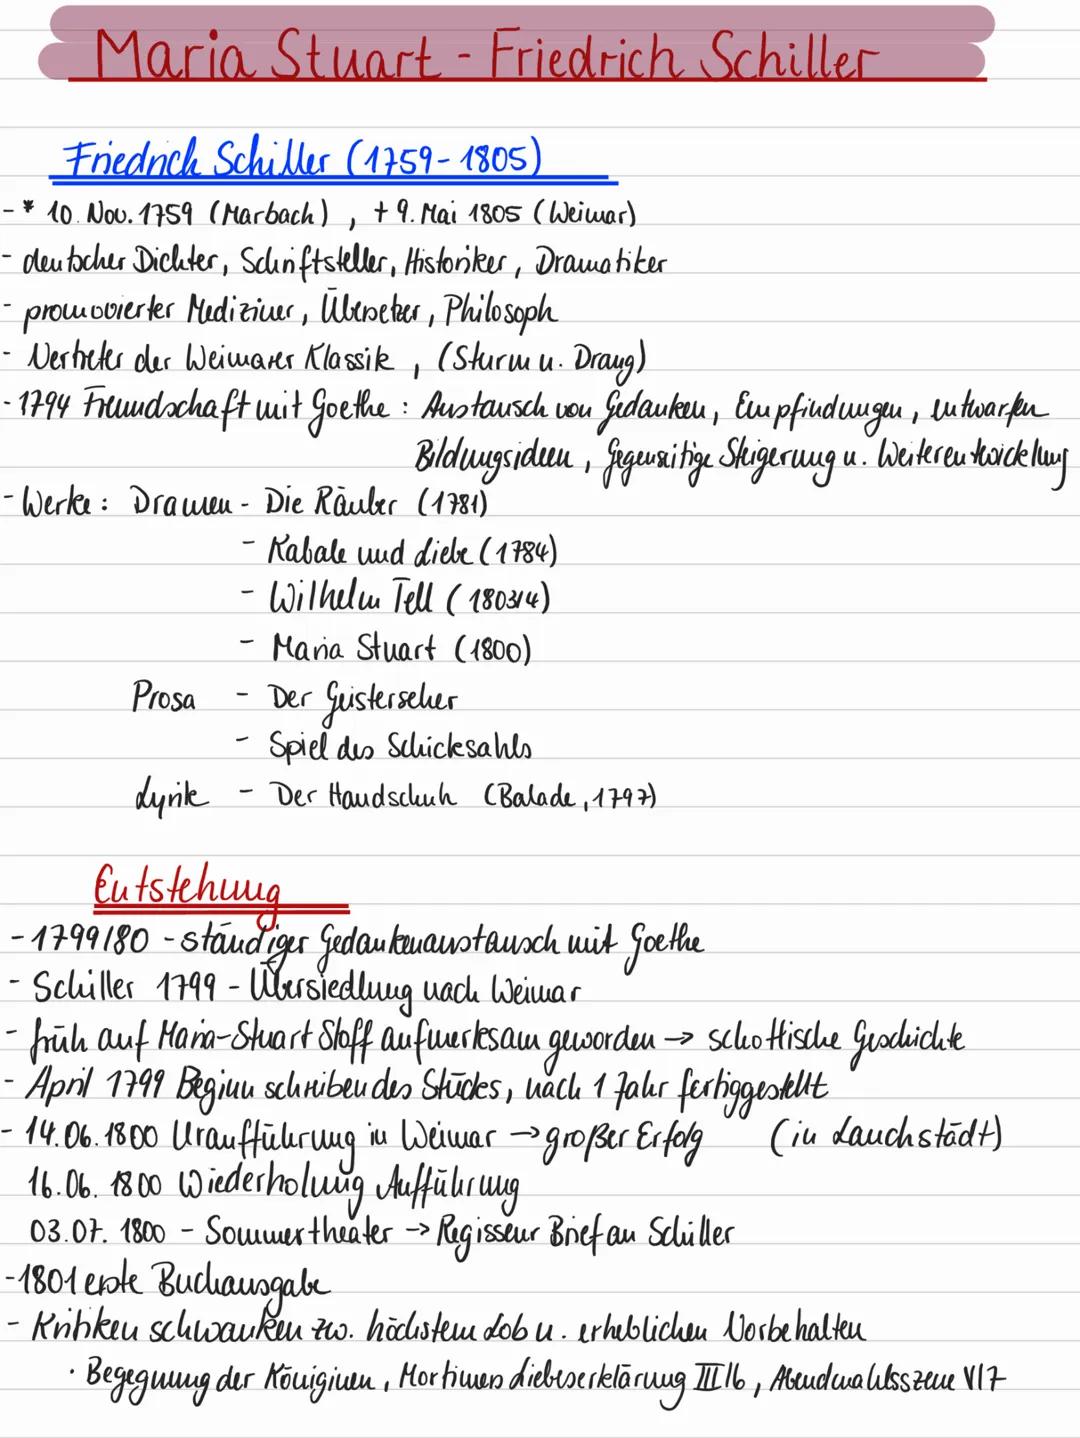 Maria Stuart - Friedrich Schiller
Friedrich Schiller (1759-1805)
- * 10. Nov. 1759 (Marbach), + 9. Mai 1805 (Weimar)
- deutscher Dichter, Schriftsteller, Historiker, Dramatiker
- promovierter Mediziner, Übersetzer, Philosoph
- Vertreter der Weimarer Klassik, (Sturm u. Drang)
- 1794 Freundschaft mit Goethe: Austausch von Gedanken, Empfindungen, entwarfen
Bildungsideen, gegenseitige Steigerung u. Weiterentwicklung
- Werke: Dramen - Die Räuber (1781)
- Kabale und Liebe (1784)
- Wilhelm Tell (1803/4)
- Maria Stuart (1800)
Prosa - Der Geisterseher
- Spiel des Schicksahls
Lyrik - Der Handschuh (Balade, 1797)
Entstehung
- 1799/80 - ständiger Gedankenaustausch mit Goethe
- Schiller 1799 - Übersiedlung nach Weimar
- früh auf Maria-Stuart Stoff aufmerksam geworden → schottische Geschichte
- April 1799 Beginn schreiben des Stückes, nach 1 Jahr fertiggestellt
- 14.06.1800 Uraufführung in Weimar → großer Erfolg (in Lauchstädt)
16.06.1800 Wiederholung Aufführung
03.07.1800 - Sommertheater → Regisseur Brief an Schiller
- 1801 erste Buchausgabe
- Kritiken schwanken zw. höchstem Lob u. erheblichen Vorbehalten
· Begegnung der Königinen, Mortimers Liebeserklärung III/6, Abendmahlsszene V/7